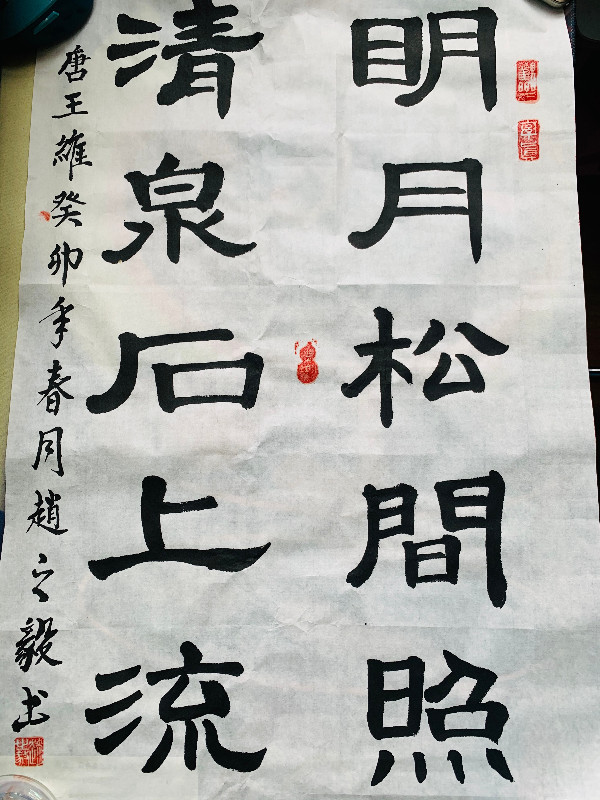 明月松間照
清泉石上流
唐王維癸卯年春月趙之毅书